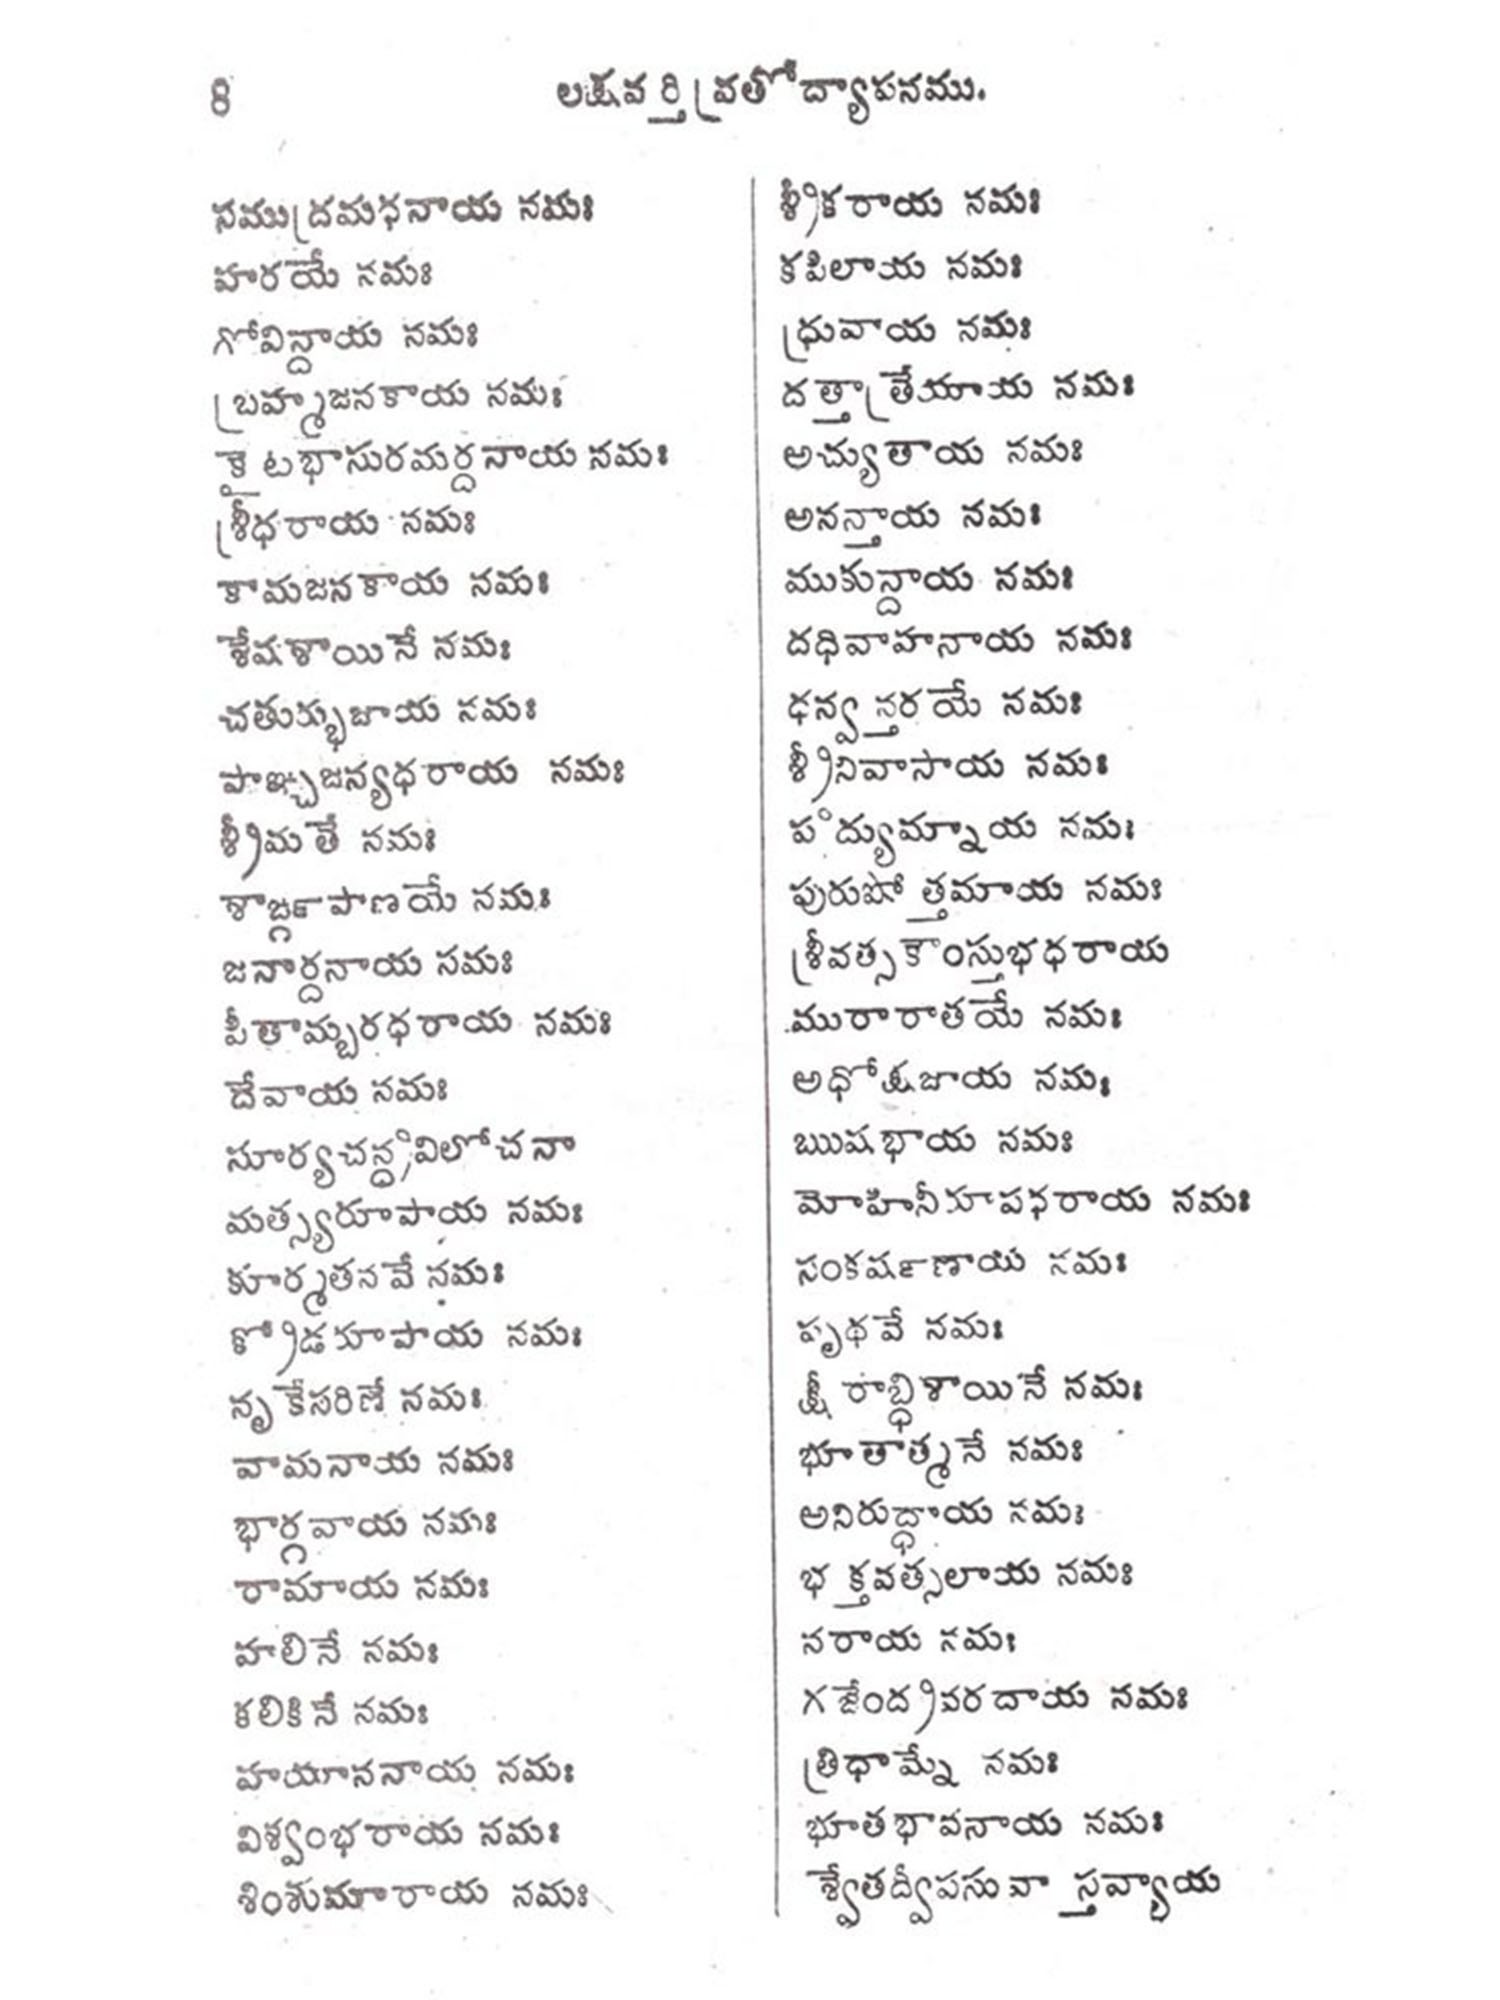 8
లక్షవర్తివ్రతోద్యాపనము.
సముద్రమధనాయ నమః
హరయే నమః
గోవిన్దాయ నమః
బ్రహ్మజనకాయ నమః
కైటభాసురమర్దనాయ నమః
శ్రీధరాయ నమః
కామజనకాయ నమః
శేషశాయినే నమః
చతుర్భుజాయ నమః
పాఞ్చజన్యధరాయ నమః
శ్రీమతే నమః
శార్ఙ్గపాణయే నమః
జనార్దనాయ నమః
పీతామ్బరధరాయ నమః
దేవాయ నమః
సూర్యచన్ద్రవిలోచనా
మత్స్యరూపాయ నమః
కూర్మతనవే నమః
క్రోడరూపాయ నమః
నృకేసరిణే నమః
వామనాయ నమః
భార్గవాయ నమః
రామాయ నమః
హలినే నమః
కలికినే నమః
హయాననాయ నమః
విశ్వంభరాయ నమః
శింశుమారాయ నమః
శ్రీకరాయ నమః
కపిలాయ నమః
ధ్రువాయ నమః
దత్తాత్రేయాయ నమః
అచ్యుతాయ నమః
అనన్తాయ నమః
ముకున్దాయ నమః
దధివాహనాయ నమః
ధన్వన్తరయే నమః
శ్రీనివాసాయ నమః
ప్రద్యుమ్నాయ నమః
పురుషోత్తమాయ నమః
శ్రీవత్సకౌంస్తుభధరాయ
మురారాతయే నమః
అధోక్షజాయ నమః
ఋషభాయ నమః
మోహినీరూపధరాయ నమః
సంకర్షణాయ నమః
పృథవే నమః
క్షీరాబ్ధిశాయినే నమః
భూతాత్మనే నమః
అనిరుద్ధాయ నమః
భక్తవత్సలాయ నమః
నరాయ నమః
గజేంద్రవరదాయ నమః
త్రిధామ్నే నమః
భూతభావనాయ నమః
శ్వేతద్వీపసువాస్తవ్యాయ